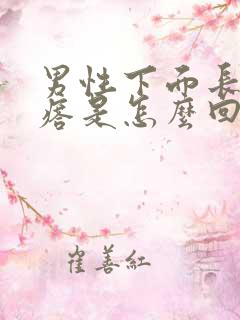 男性下面長
痞是怎麼回
崔善紅